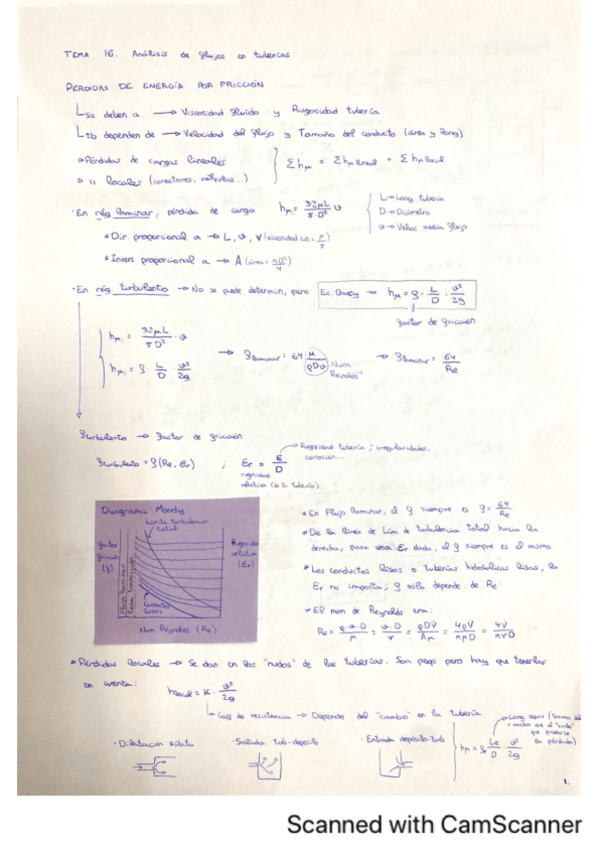 TEMA 16. Análisis de flujos en tuberías
PÉRDIDAS DE ENERGÍA POR FRICCIÓN
Se deben a → Viscosidad fluido y Rugosidad tubería
Tb dependen de → Velocidad del flujo y Tamaño del conducto (área y long)
Pérdidas de cargas lineales
Σhμ = Σhμ lineal + Σhμ local
" locales (conectores, válvulas...)
· En rég laminar, pérdida de carga hμ = 32μL / γ·D² · v
L → Long. tubería
D → Diámetro
v → Veloc media flujo
* Dir. proporcional a → L, v, ν (viscosidad cin =
* Invers proporcional a → A (área = πD²/4)
· En rég. turbulento → No se puede determin, pero Ec. Darcy → hμ = f · L/D · v²/2g
factor de fricción
hμ = 32μL / γD² · v
hμ = f · L/D · v²/2g
→ flaminar = 64 μ/ρDv Num Reynolds⁻¹ → flaminar = 64/Re
fturbulento → factor de fricción
Rugosidad tubería; irregularidades, corrosión...
fturbulento = f(Re, Er) ; Er = E/D
rugosidad relativa (de la tubería)
Diagrama Moody
Limite turbulencia total
factor fricción (f)
Rugosidad relativa (Er)
Flujo laminar
Zona transición
Conductos lisos
Num Reynolds (Re)
* En flujo laminar, el f siempre es f = 64/Re
* De la línea de Lím de turbulencia total hacia la derecha, para una Er dada, el f siempre es el mismo
* Los conductos lisos o tuberías hidráulicas lisas, la Er no importa; f sólo depende de Re
* El num de Reynolds era:
Re = ρ·v·D/μ = v·D/ν = ρDV̇/Aμ = 4ρV̇/πμD = 4V̇/πνD
Pérdidas locales → Se dan en los "nudos" de las tuberías. Son peqs pero hay que tenerlas
en cuenta: hlocal = K · v²/2g
Coef de resistencia → Depende del "cambio" en la tubería
· Dilatación súbita · Salida tub-depósito · Entrada depósito-tub
hμ = f Le/D v²/2g
que produce la pérdida)
1.
Scanned with CamScanner